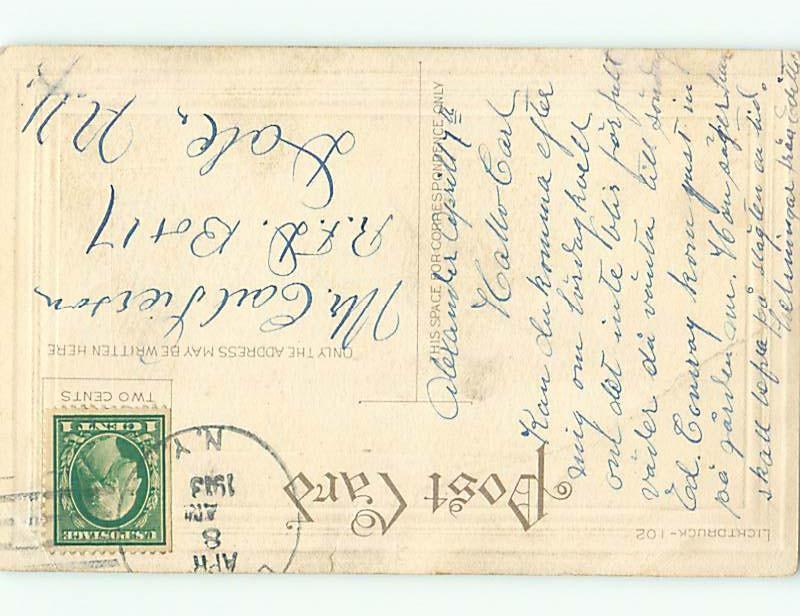 Post Card
THIS SPACE FOR CORRESPONDENCE ONLY
ONLY THE ADDRESS MAY BE WRITTEN HERE
TWO CENTS
1 CENT 1
U.S. POSTAGE
APR
8
AM
1913
N.Y.
Mr. Carl
R.F.D. Box 17
Dale,
N.Y.
Alexander April 7th
Hallo Carl
Kan du komma efter
mig om lördagkvell
om det inte blir för fult
väder då vänta till söndag
Ed. Conway kom just in
på gården nu. Hon säger hon
skall vara på en tid.
Helsningar från
LICHTDRUCK-102